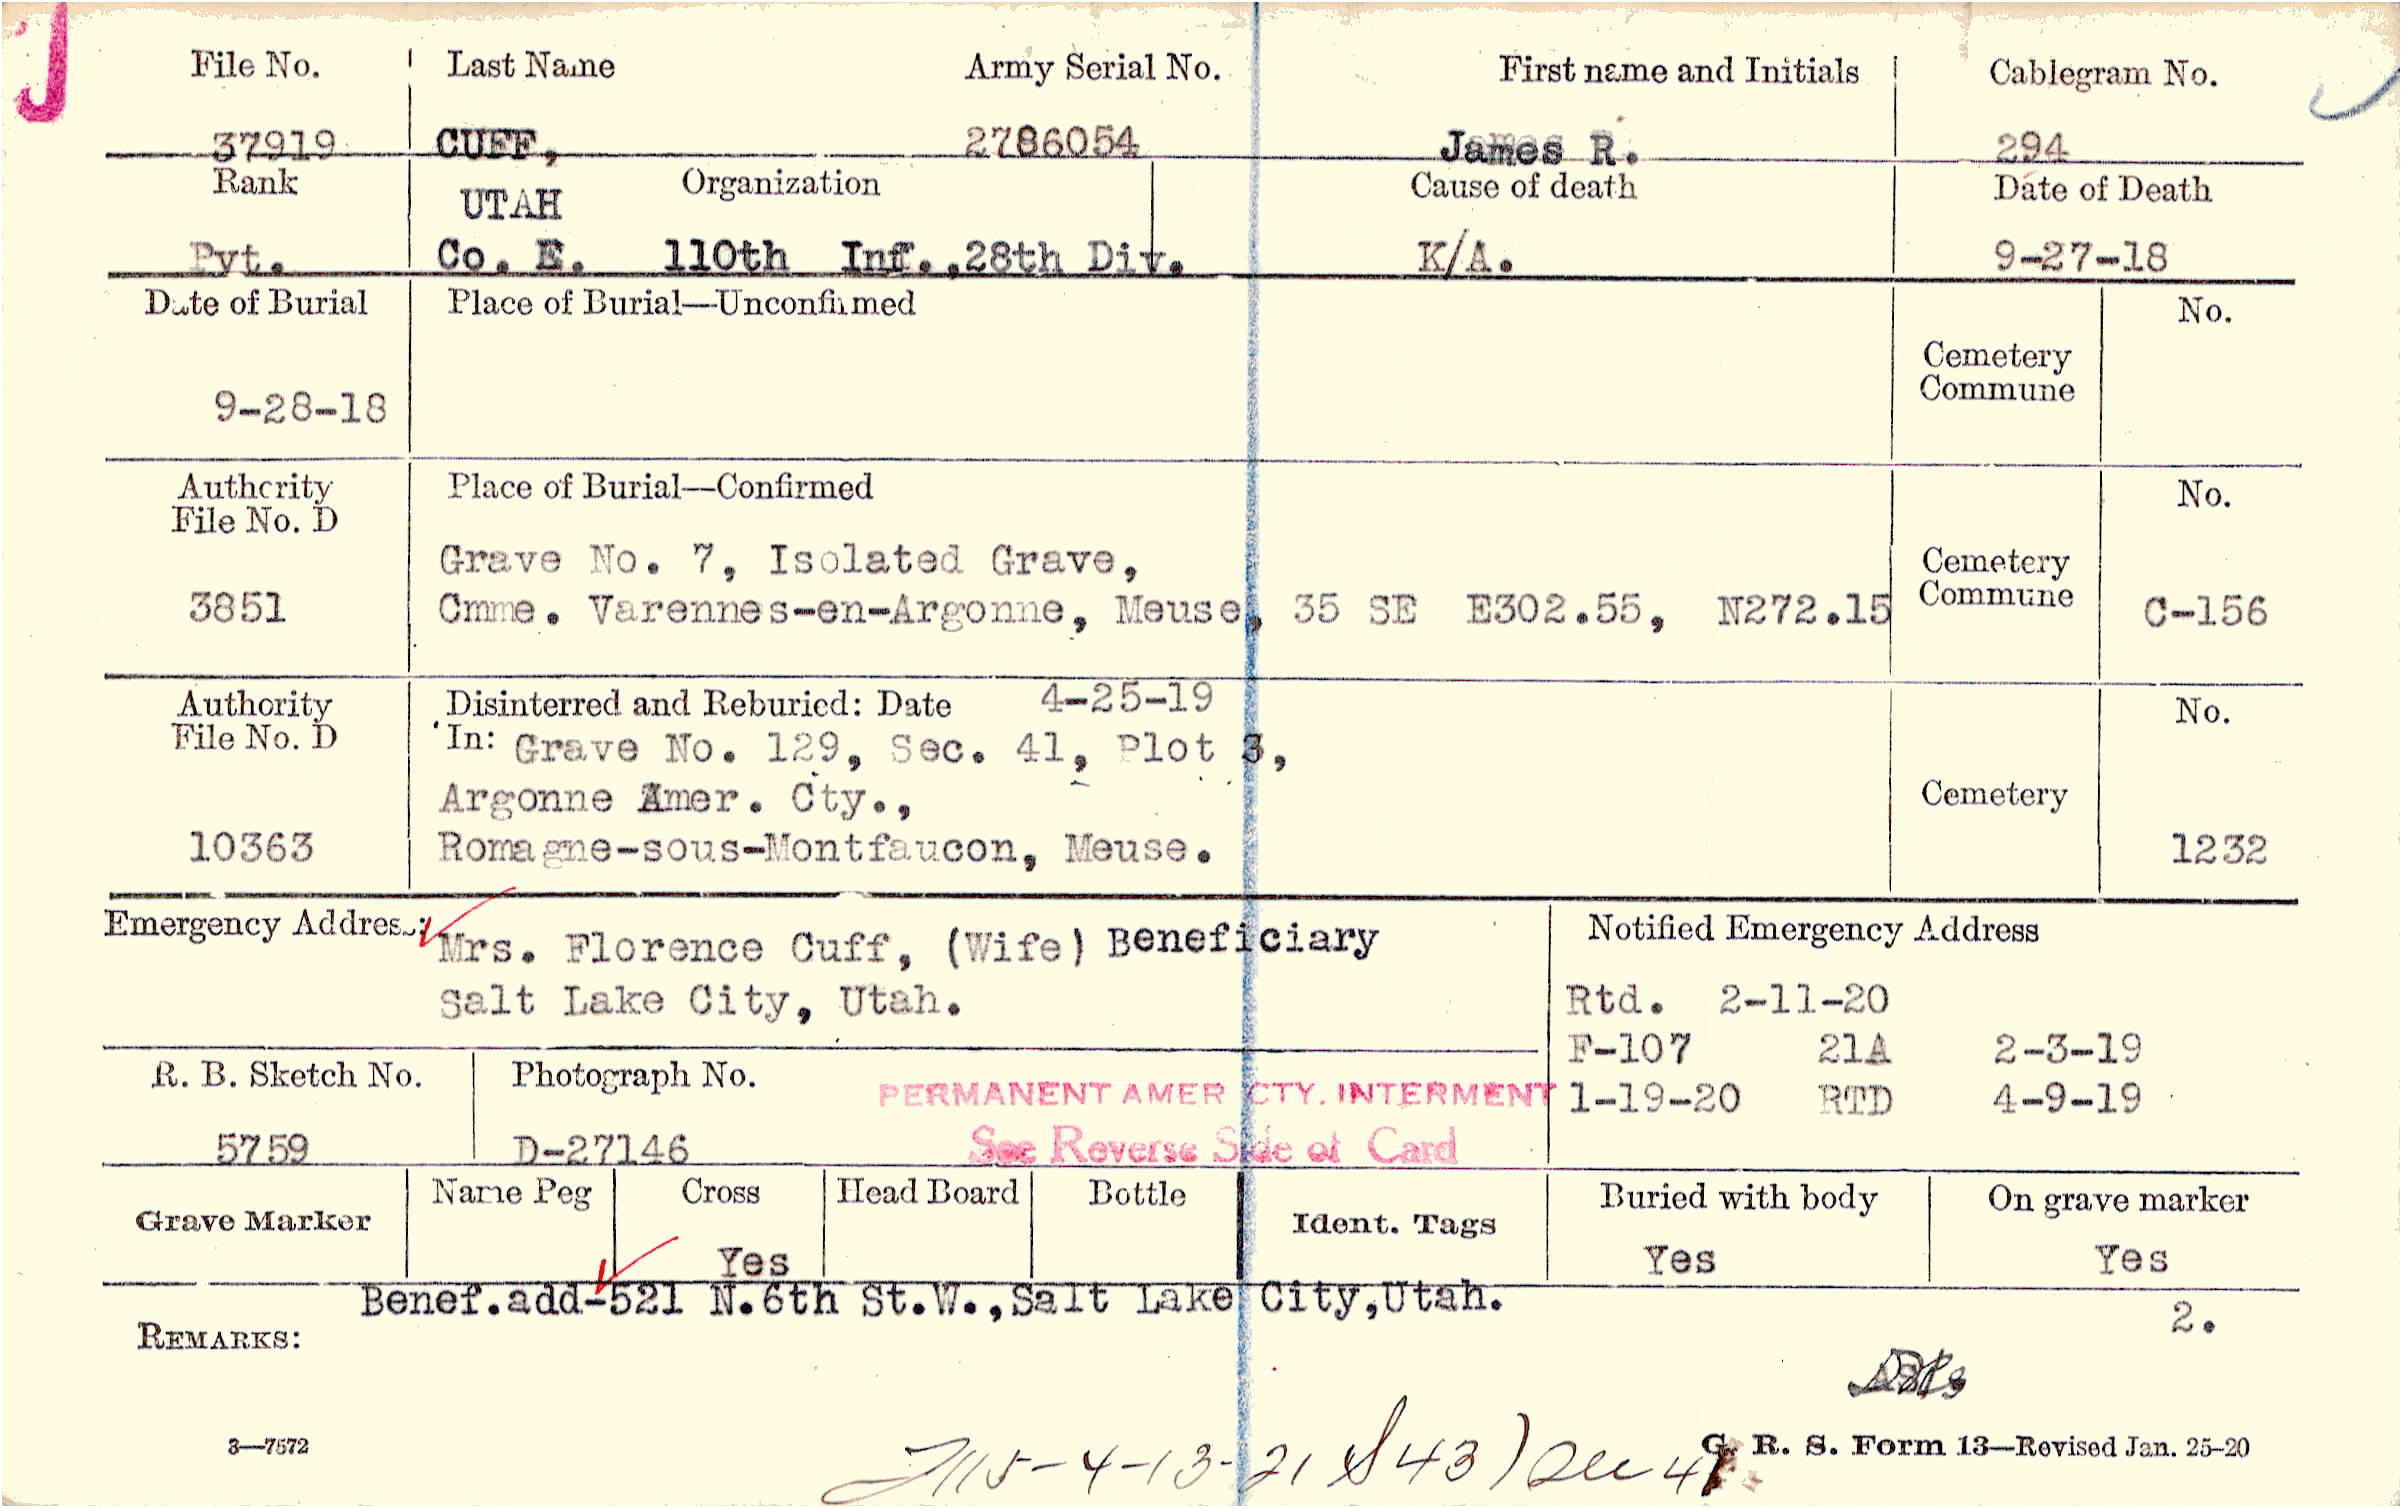 File No. Last Name Army Serial No. First name and Initials Cablegram No.
37919 CUFF, 2786054 James R. 294
Rank UTAH Organization Cause of death Date of Death
Pvt. Co. E. 110th Inf.,28th Div. K/A. 9-27-18
Date of Burial Place of Burial—Unconfirmed No.
Cemetery
Commune
9-28-18
Authority Place of Burial—Confirmed No.
File No. D
Grave No. 7, Isolated Grave, Cemetery
3851 Cmme. Varennes-en-Argonne, Meuse, 35 SE E302.55, N272.15 Commune C-156
Authority Disinterred and Reburied: Date 4-25-19 No.
File No. D In: Grave No. 129, Sec. 41, Plot 3,
Argonne Amer. Cty., Cemetery
10363 Romagne-sous-Montfaucon, Meuse. 1232
Emergency Address: Mrs. Florence Cuff, (Wife) Beneficiary Notified Emergency Address
Salt Lake City, Utah. Rtd. 2-11-20
F-107 21A 2-3-19
R. B. Sketch No. Photograph No. PERMANENT AMER CTY. INTERMENT 1-19-20 RTD 4-9-19
5759 D-27146 See Reverse Side of Card
Grave Marker Name Peg Cross Head Board Bottle Ident. Tags Buried with body On grave marker
Yes Yes Yes
Benef.add-521 N.6th St.W.,Salt Lake City,Utah.
2.
REMARKS:
3—7572 G. R. S. Form 13—Revised Jan. 25-20
4-13-21 43)